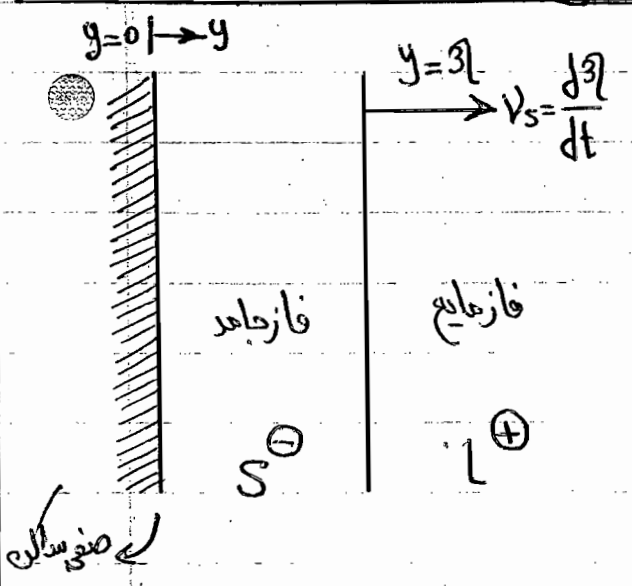 y=0 → y
y=η
V_s = dη/dt
فاز جامد
فاز مایع
S⊖
L⊕
صفحه ساکن